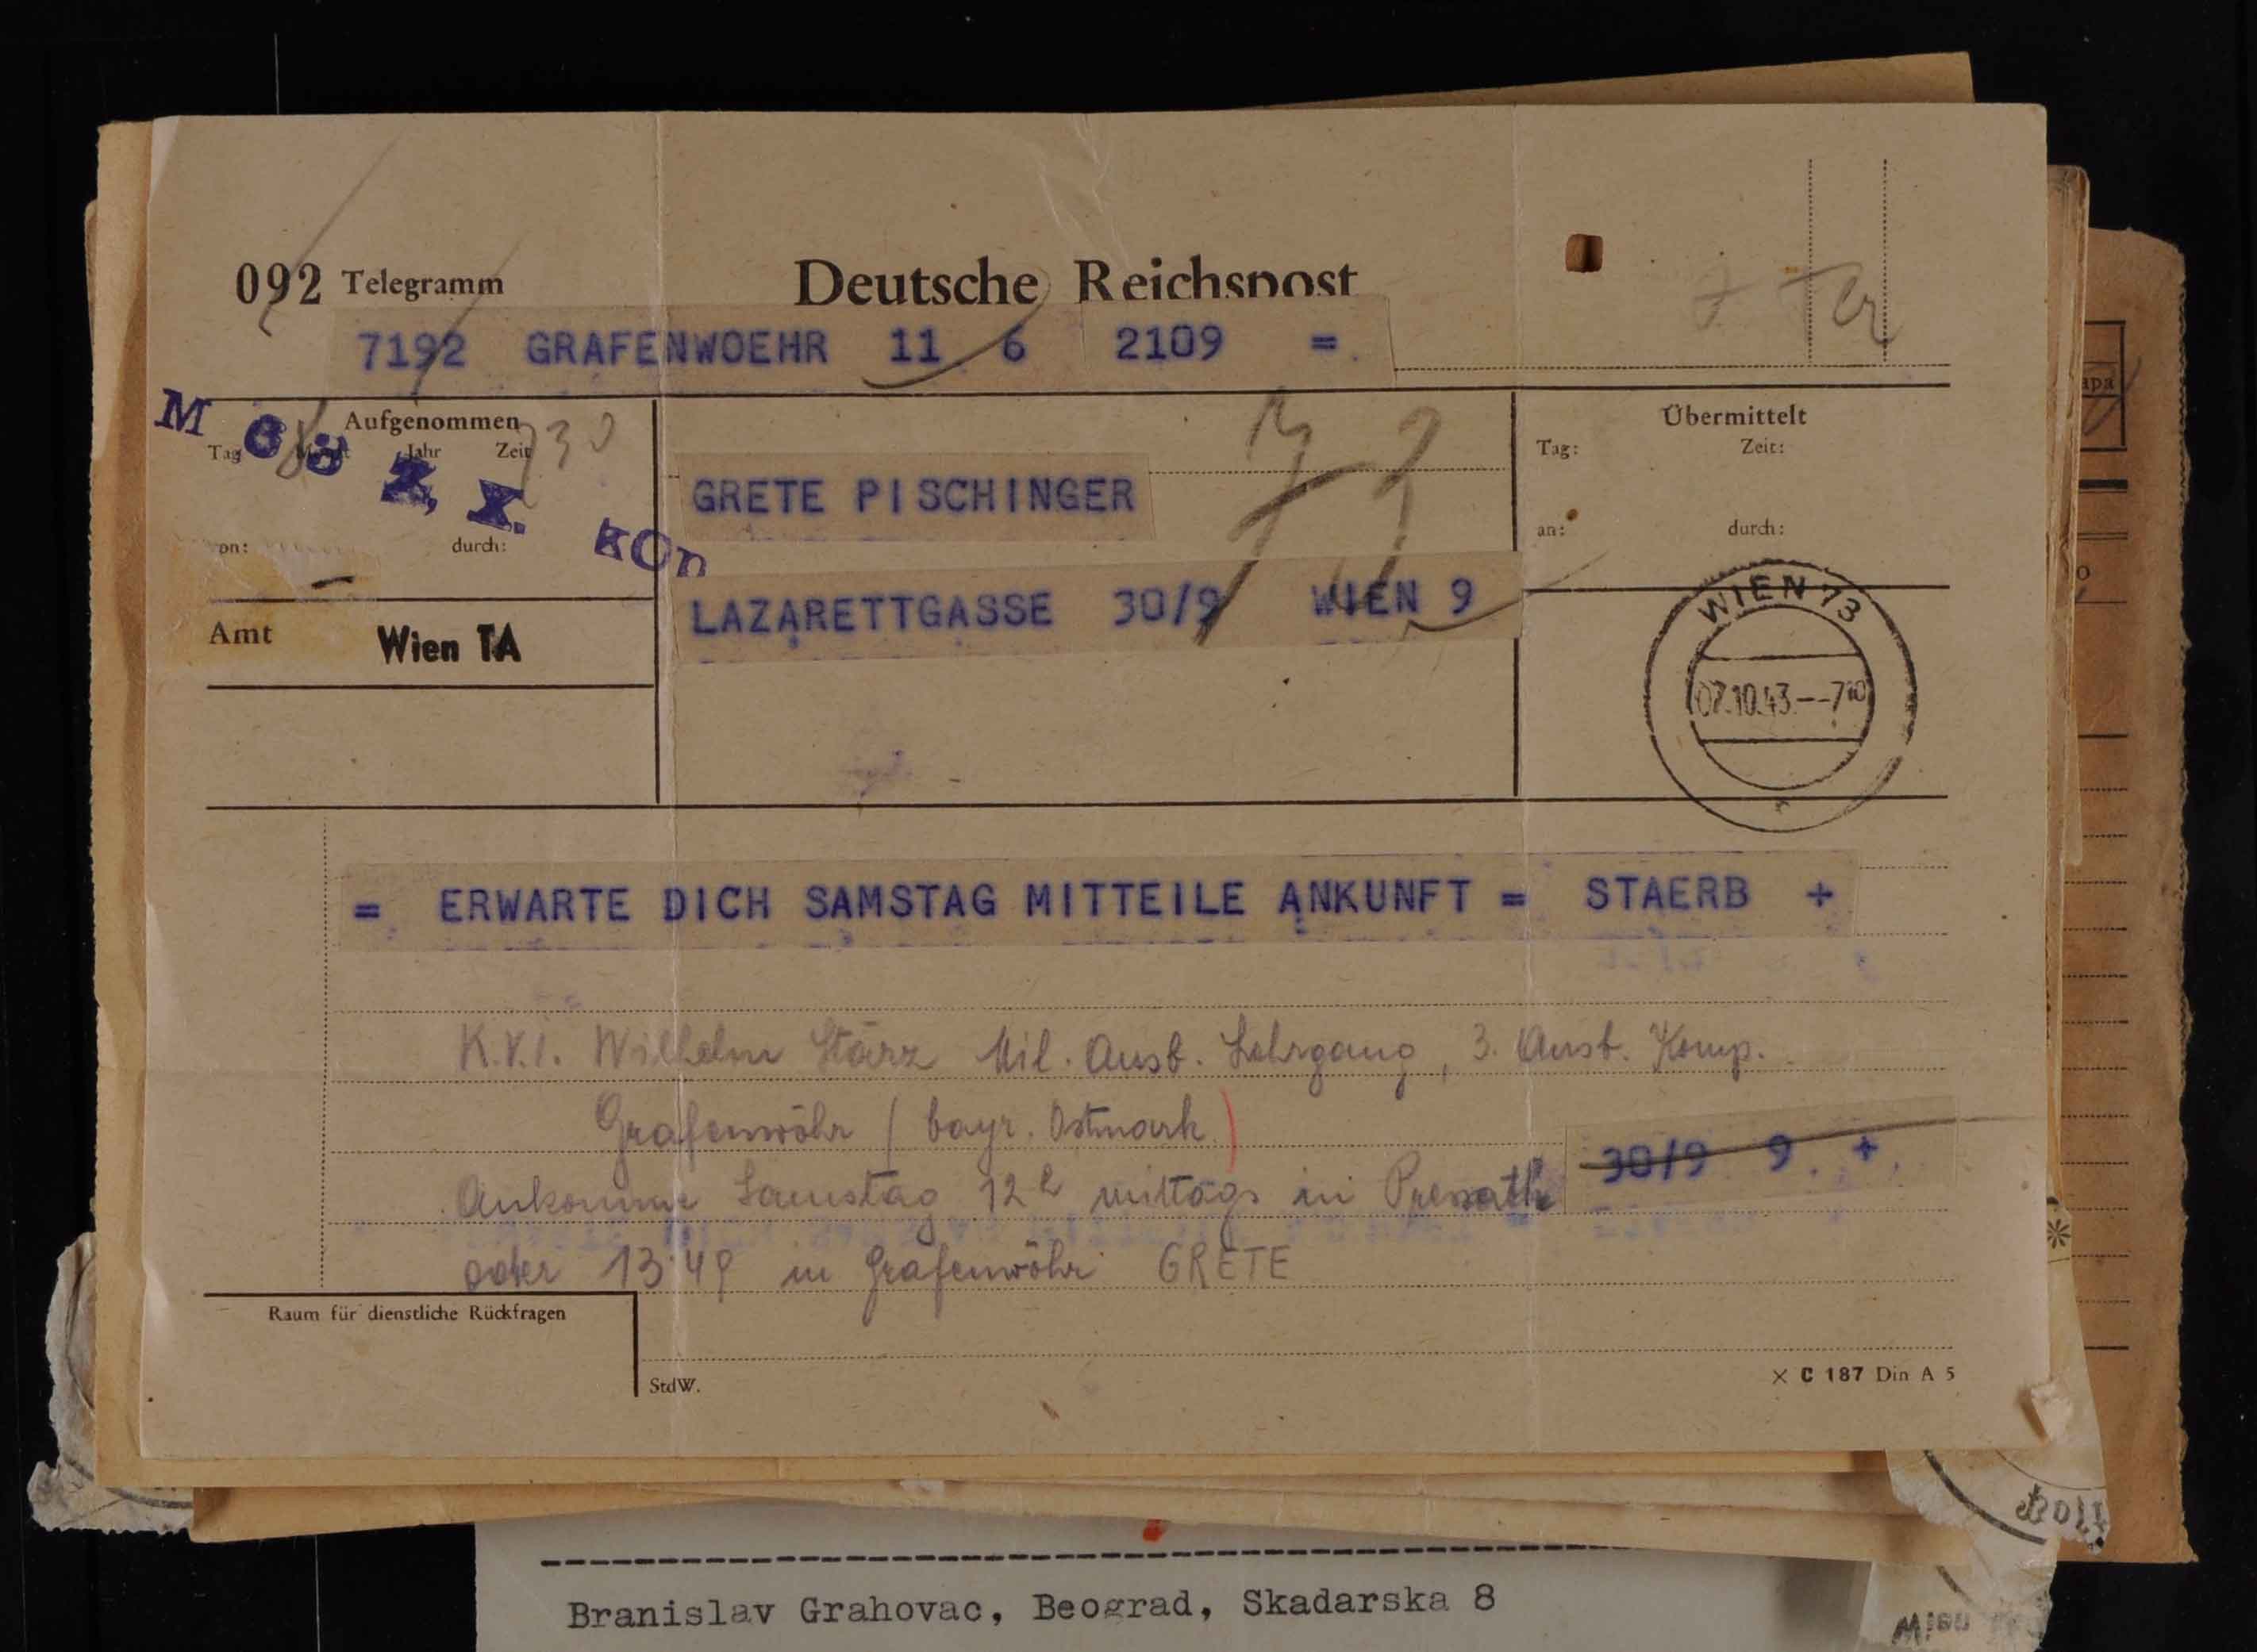 092 Telegramm Deutsche Reichspost
7192 GRAFENWOEHR 11 6 2109 =
Aufgenommen
Tag Monat Jahr Zeit
730
von: durch:
Amt Wien TA
GRETE PISCHINGER
LAZARETTGASSE 30/9 WIEN 9
Übermittelt
Tag: Zeit:
an: durch:
WIEN 73
07.10.43.--7
= ERWARTE DICH SAMSTAG MITTEILE ANKUNFT = STAERB +
K.V.I. Wilhelm Stärz Mil. Ausb. Lehrgang, 3. Ausb. Komp.
Grafenwöhr (bayr. Ostmark)
30/9 9. +
Ankomme Samstag 12h mittags in Pressath
oder 13:49 in Grafenwöhr GRETE
Raum für dienstliche Rückfragen
StdW.
× C 187 Din A 5
Branislav Grahovac, Beograd, Skadarska 8